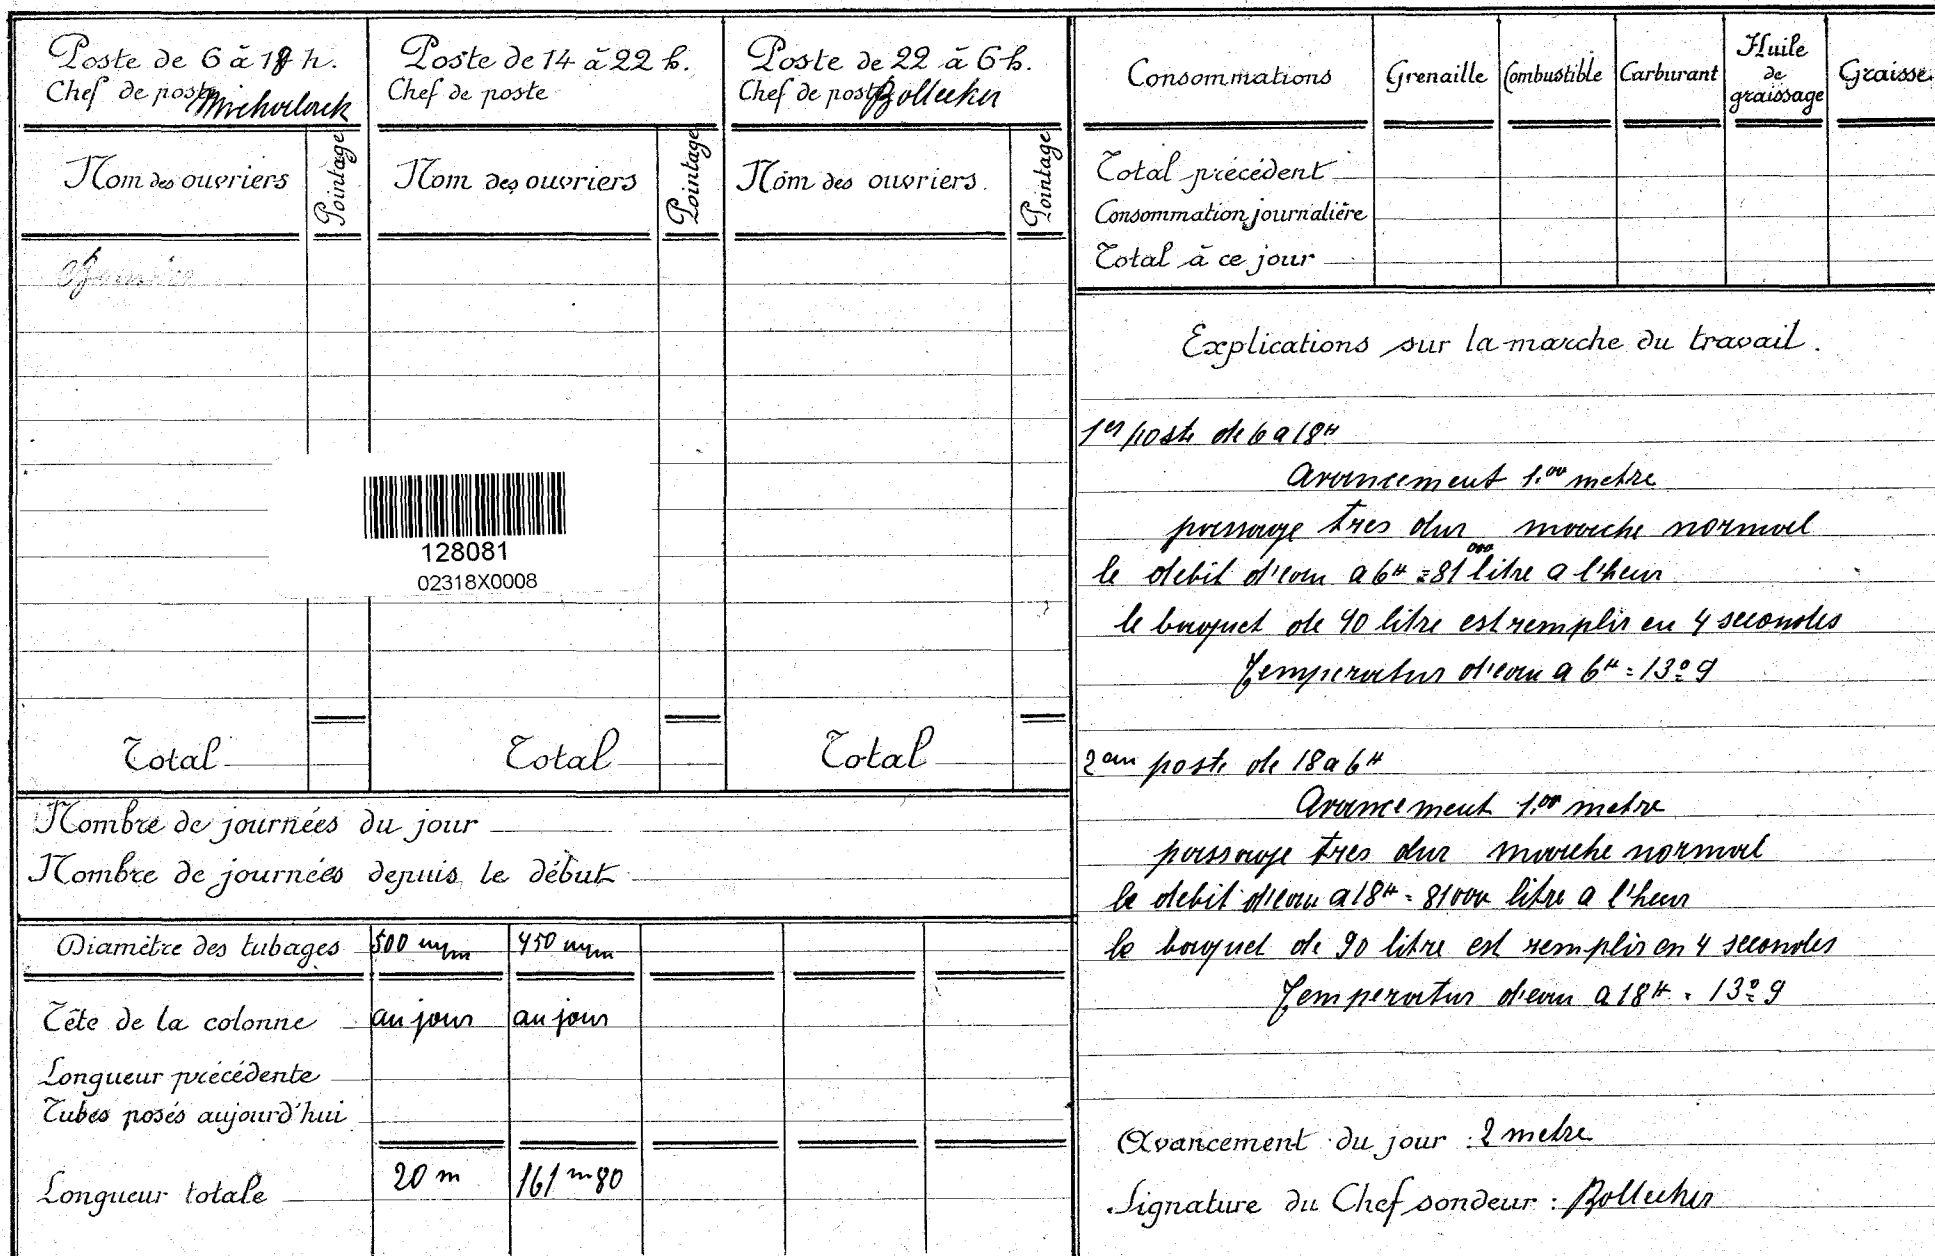 Poste de 6 à 18 h.
Chef de poste
Nom des ouvriers
Pointage
Total
Poste de 14 à 22 h.
Chef de poste
Nom des ouvriers
Pointage
Total
Poste de 22 à 6 h.
Chef de poste Bollecker
Nom des ouvriers
Pointage
Total
128081
02318X0008
Nombre de journées du jour
Nombre de journées depuis le début
Diamètre des tubages 500 m/m 450 m/m
Tête de la colonne au jour au jour
Longueur précédente
Tubes posés aujourd'hui
Longueur totale 20 m 161 m 80
Consommations Grenaille Combustible Carburant Huile de graissage Graisse
Total précédent
Consommation journalière
Total à ce jour
Explications sur la marche du travail.
1er poste de 6 a 18H
Avancement 1.00 metre
passage tres dur marche normal
le debit d'eau a 6H = 81000 litre a l'heur
le baquet de 90 litre est remplir en 4 secondes
Temperatur d'eau a 6H = 13º9
2em poste de 18 a 6H
Avancement 1.00 metre
passage tres dur marche normal
le debit d'eau a 18H = 81000 litre a l'heur
le baquet de 90 litre est remplir en 4 secondes
Temperatur d'eau a 18H = 13º9
Avancement du jour : 2 metre
Signature du Chef sondeur : Bollecker